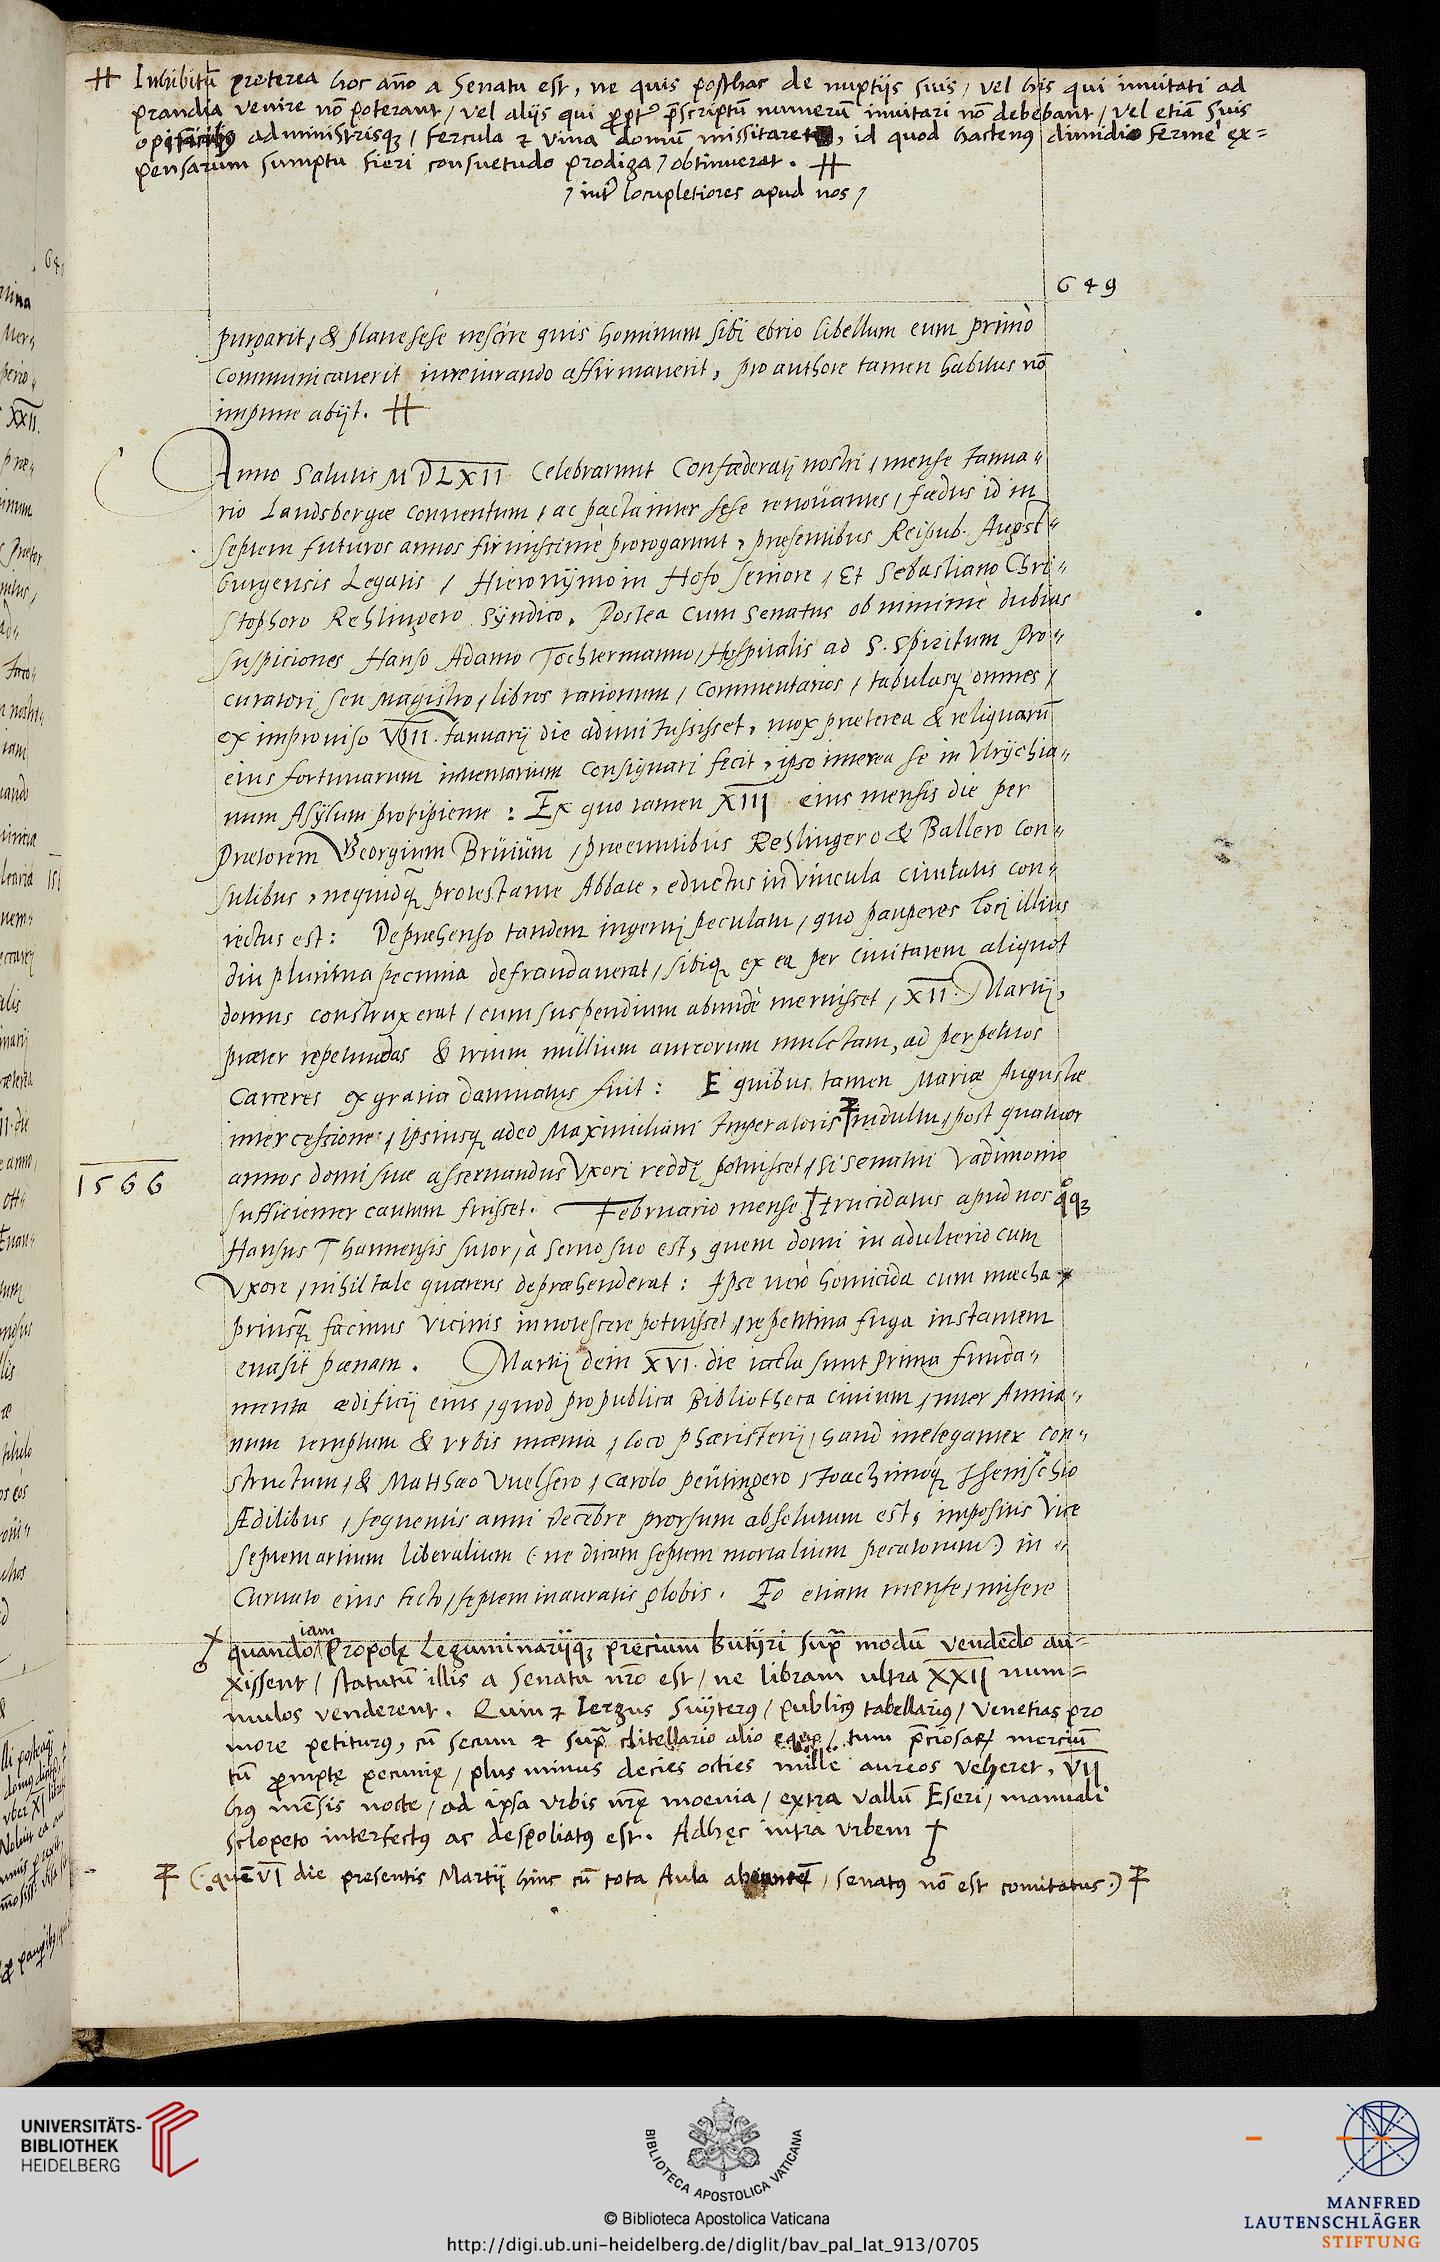 ⧺ Inhibitū preterea hoc año a Senatu est, ne quis posthac de nuptijs suis / vel his qui inuitati ad
prandia venire nō poterant / vel alijs qui ꝓpt᷑ p̄scriptū numerū inuitari nō debebant / vel etiā suis
opificibꝰ administrisqꝫ / fercula ⁊ vina domū missitaret, id quod hactenꝰ dimidio fermè ex=
pensarum sumptu fieri consuetudo prodiga / obtinuerat. ⧺
/ int᷑ locupletiores apud nos /
649
purgarit, & plane sese nescire quis hominum sibi ebrio libellum eum primò
communicauerit iureiurando affirmauerit, pro authore tamen habitus nō
impune abijt. ⧺
Anno Salutis MDLXII Celebrarunt Confæderatj nostri, mense Ianua-
rio Landsbergæ conuentum, ac pacta inter sese renouantes, fædus id in
septem futuros annos firmissimè prorogarunt, præsentibus Reipub. Augst-
burgensis Legatis, Hieronÿmo in Hofo seniore, Et Sebastiano Chri-
stophoro Rehlingero Sÿndico. Postea cum Senatus ob minimè dubias
suspiciones Hanso Adamo Tochtermanno, Hospitalis ad S. Spiritum Pro-
curatori seu Magistro, libros rationum, Commentarios, tabulasqꝫ omnes,
ex improuiso VIII. Ianuarij die adimi iussisset, mox præterea & reliquarū
eius fortunarum inuentarium consignari fecit, ipso interea se in Vlrÿchia-
num Asÿlum proripiente: Ex quo tamen XIII eius mensis die per
Prætorem Georgium Brüiüm, præeuntibus Rehlingero & Ballero con-
sulibus, nequidqꝫ protestante Abbate, eductus in vincula ciuitatis con-
iectus est: Deprehenso tandem ingentj peculatu, quo pauperes locj illius
diu plurima pecunia defraudauerat, sibiqꝫ ex ea per ciuitatem aliquot
domus construxerat, cum suspendium abundè meruisset, XII. Martij,
præter repetundas & trium millium aureorum mulctam, ad perpetuos
Carceres ex gratia damnatus fuit: E quibus tamen Mariæ Augustæ
intercessione, ipsiusqꝫ adeo Maximiliani Imperatoris indultu, post quatuor
annos domi suæ asseruandus Vxori reddj potuisset, si senatui vadimonio
1566
sufficienter cautum fuisset. Februario mense trucidatus apud nos q̊qꝫ
Hansus Thannensis sutor, à seruo suo est, quem domi in adulterio cum
Vxore, nihil tale quærens depræhenderat: Ipse uerò homicida cum mæcha
priusqꝫ facinus vicinis innotescere potuisset, repentina fuga instantem
euasit pænam. Martij dein XVI. die iacta sunt prima funda-
menta ædificij eius, quod pro publica Bibliotheca ciuium, inter Annia-
num templum & vrbis mænia, loco phæristerij, haud ineleganter con-
structum, & Matthæo Vuelsero, Carolo Peütingero, Ioachimoqꝫ Ihenischio
Ædilibus, sequentis anni Decēbre prorsum absolutum est, impositis vice
septem artium liberalium (ne dicam septem mortalium pecatorum) in
Curuato eius tecto, septem inauratis globis. Eo etiam mense, misere
iam
quando Propolę Leguminarijqꝫ precium Butÿri sup̄ modū vendēdo au=
xissent / statutū illis a Senatu nr̄o est / ne libram ultra XXII num=
mulos venderent. Quin ⁊ Iergus Suÿterꝰ / publicꝰ tabellariꝰ / Venetias pro
more petiturꝰ, cū secum ⁊ sup̄ clitellario alio equo / tum p̄ciosaꝝ merciū
tū ꝓmptę pecunię / plus minus decies octies mille aureos veheret, VII
hꝰ mēsis nocte / ad ipsa vrbis nr̄ę moenia / extra vallū Eseri / manuali
sclopeto interfectꝰ ac despoliatꝰ est. Adhęc intra vrbem
(quē VI die presentis Martij hinc cū tota Aula abeuntē / senatꝰ nō est comitatus.)
UNIVERSITÄTS-
BIBLIOTHEK
HEIDELBERG
BIBLIOTECA APOSTOLICA VATICANA
© Biblioteca Apostolica Vaticana
http://digi.ub.uni-heidelberg.de/diglit/bav_pal_lat_913/0705
MANFRED
LAUTENSCHLÄGER
STIFTUNG